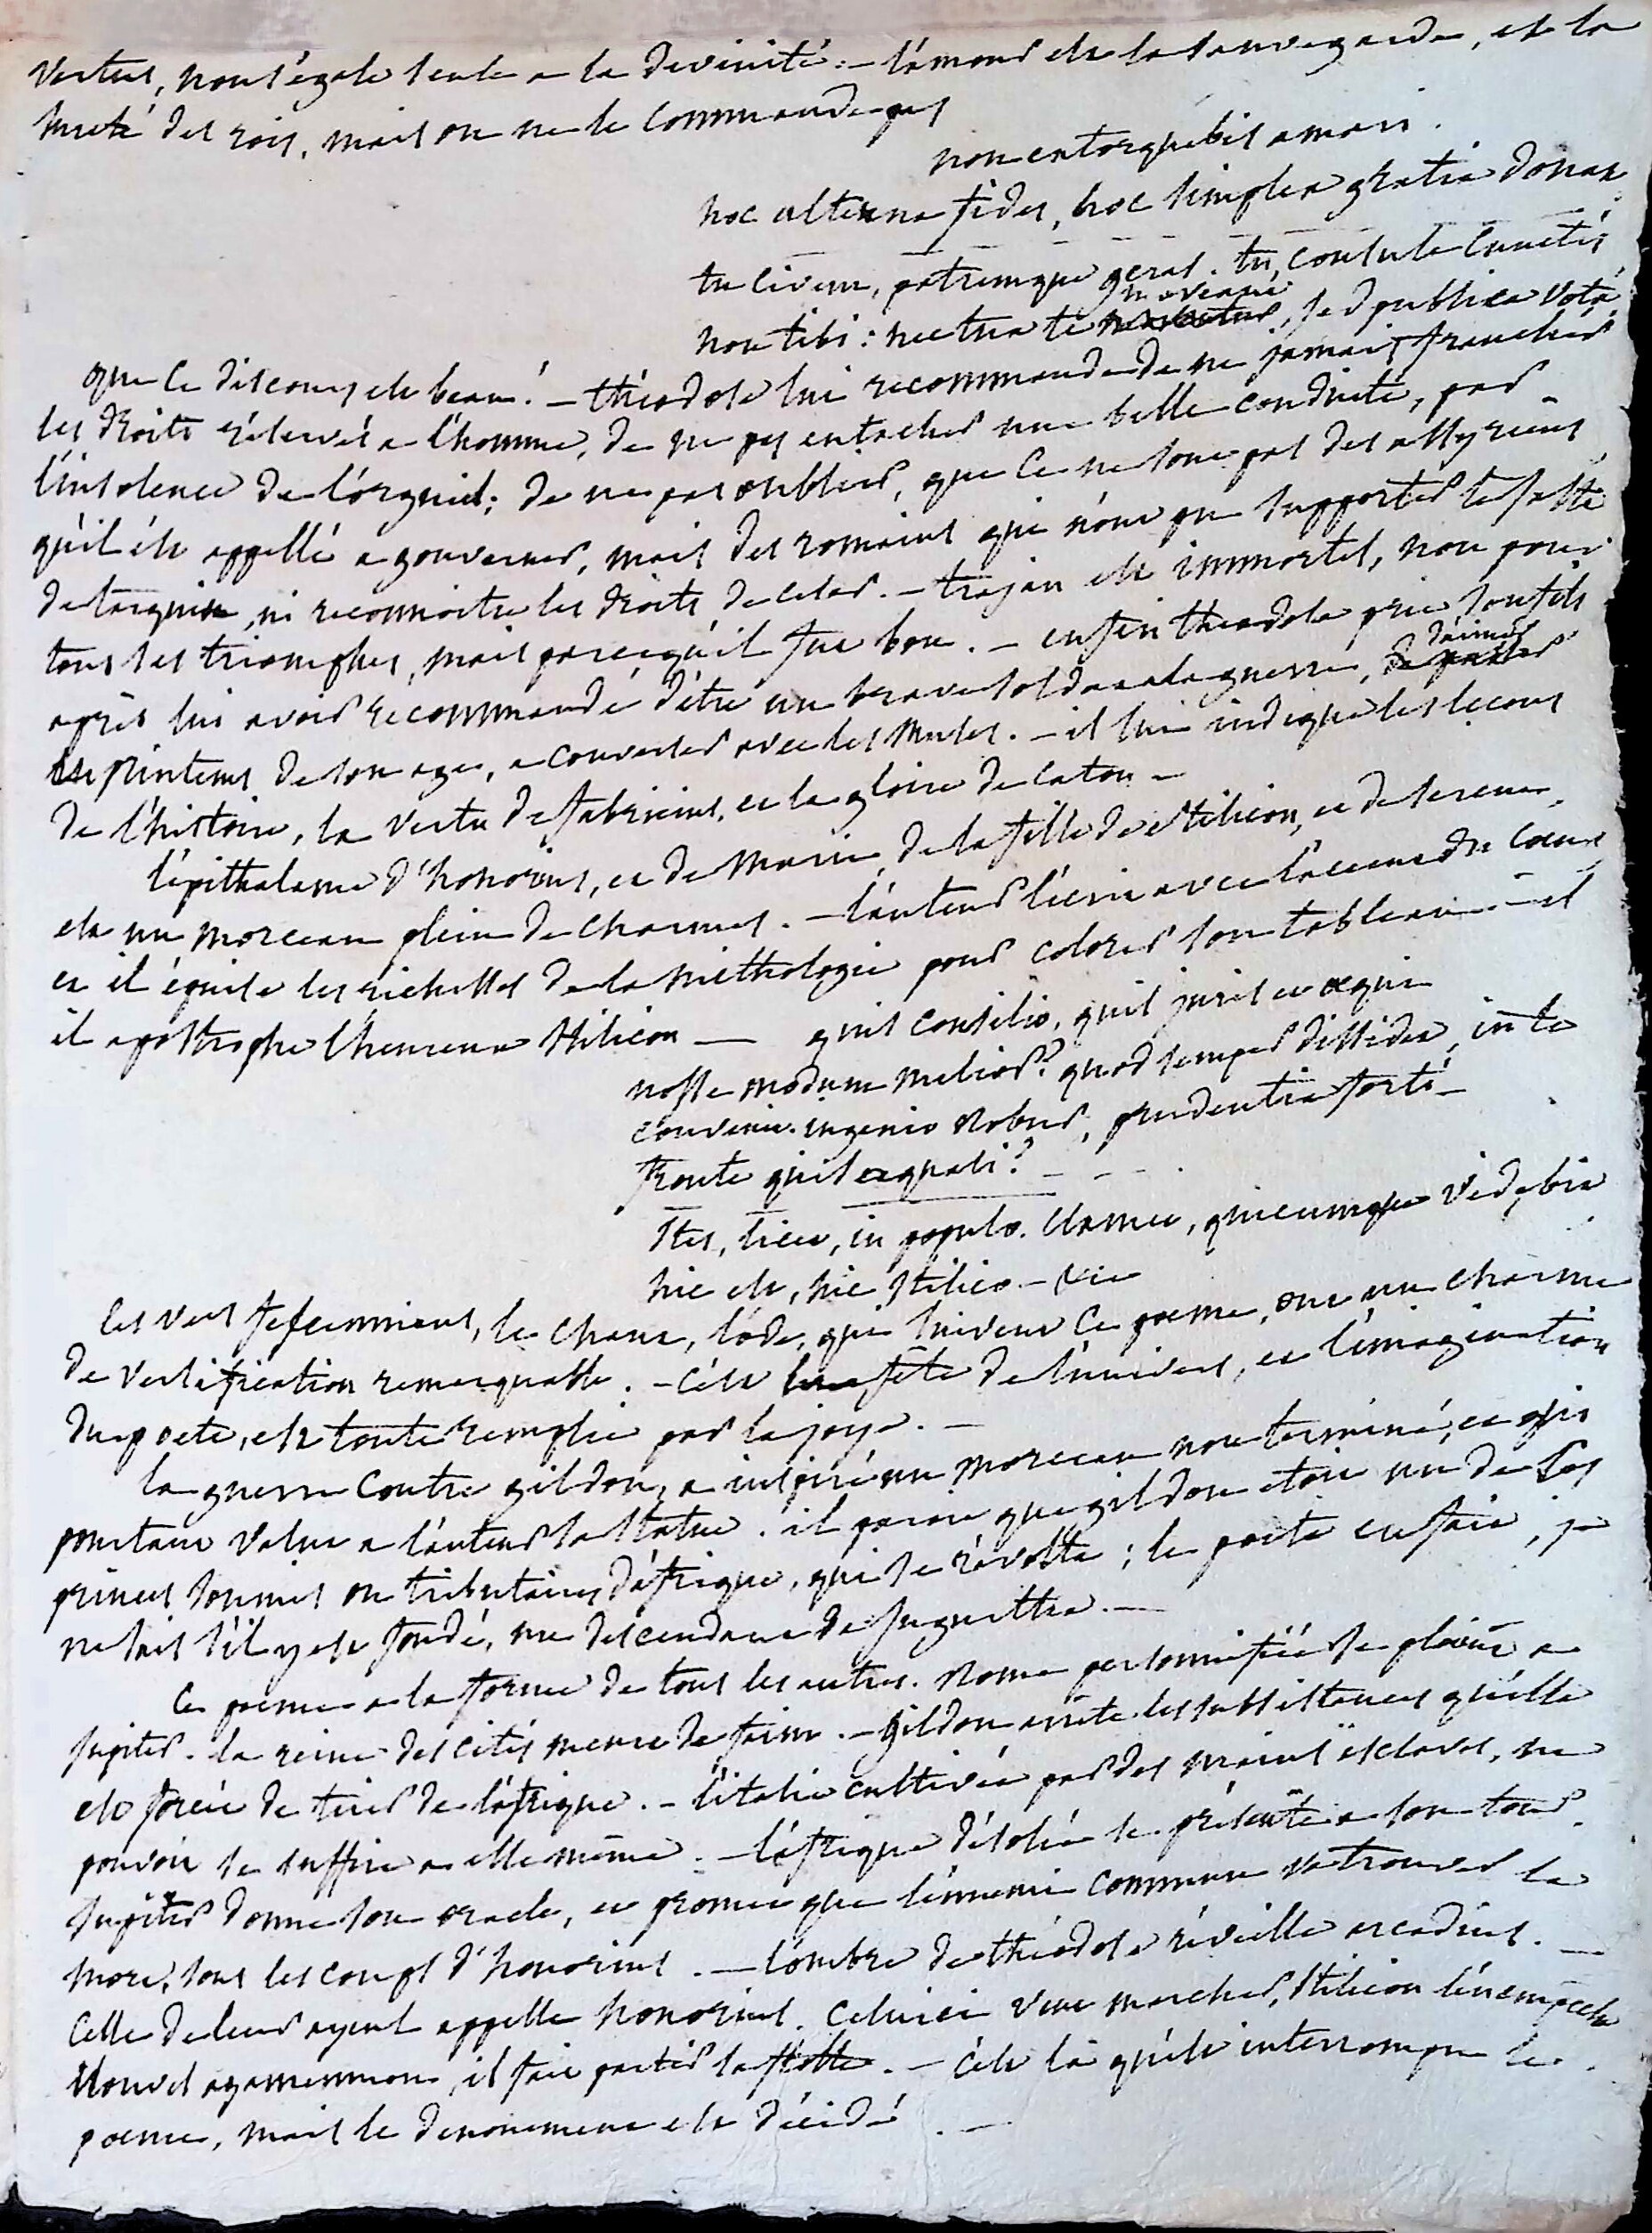 vertus, nous égale seule a la divinité. – l'amour est la sauvegarde, et la
sureté des rois, mais on ne le commande pas
non extorquebis amari.
hoc alterna fides, hoc simplex gratia donat
tu civem, patremque geras. tu, consule cunctis
non tibi: nec tua te moveant, sed publica vota.
que ce discours est beau! – théodose lui recommande de ne jamais franchir
les droits réservés a l'homme, de ne pas entacher une belle conduite, par
l'insolence de l'orgueil; de ne pas oublier, que ce ne sont pas des assyriens
qu'il est appellé a gouverner, mais des romains qui n'ont pu supporter le faste
de tarquin, ni reconnoitre les droits de cesar. – trajan est immortel, non pour
tous ses triomphes, mais parcequ'il fut bon. – enfin theodose prie son fils
après lui avoir recommandé d'être un brave soldat a la guerre, d'aimer
le printems de son age, a converser avec les muses. – il lui indique les leçons
de l'histoire, la vertu de fabricius, et la gloire de caton –
l'épithalame d'honorius, et de marie, de la fille de stilicon, et de serene,
est un morceau plein de charmes. – l'auteur l'écrit avec l'accent du coeur
et il épuise les richesses de la mithologie pour colorer son tableau. – et
il apostrophe l'heureux stilicon — quis consilio, quis juris et aequi
nosse modum melior? quod semper dissidet, in te
convenit. ingenio robur, prudentia forti
fronte quis aequali? – – –
Stes, licet, in populo. clamet, quicumque videbit
hic est, hic stilico. – &c
les vers fescennins, le chant, l'ode, qui suivent ce poeme, ont un charme
de versification remarquable. – c'est la fête de l'univers, et l'imagination
du poete, est toute remplie par la joye. –
la guerre contre gildon, a inspiré un morceau non terminé, et qui
pourtant valut a l'auteur sa statue. il paroit que gildon etoit un de ces
princes soumis ou tributaires d'afrique, qui se révolta; le poete en fait, je
ne sais s'il y est fondé, un descendant de jugurtha. —
Ce poeme a la forme de tous les autres. rome personnifiée se plaint a
jupiter. la reine des cités meurt de faim. – gildon arrête les subsistances qu'elle
est forcée de tirer de l'afrique. – l'italie cultivée par des mains esclaves, ne
pouvoit se suffire a elle même. – l'afrique désolée se présente a son tour.
jupiter donne son oracle, et promet que l'ennemi commun va trouver la
mort, sous les coups d'honorius. – l'ombre de théodose réveille arcadius. —
celle de leur ayeul appelle honorius. celui ci veut marcher, stilicon l'en empeche
nouvel agamemnon, il fait partir la flotte. – c'est la qu'est interrompu le
poeme, mais le denouement est décidé. —